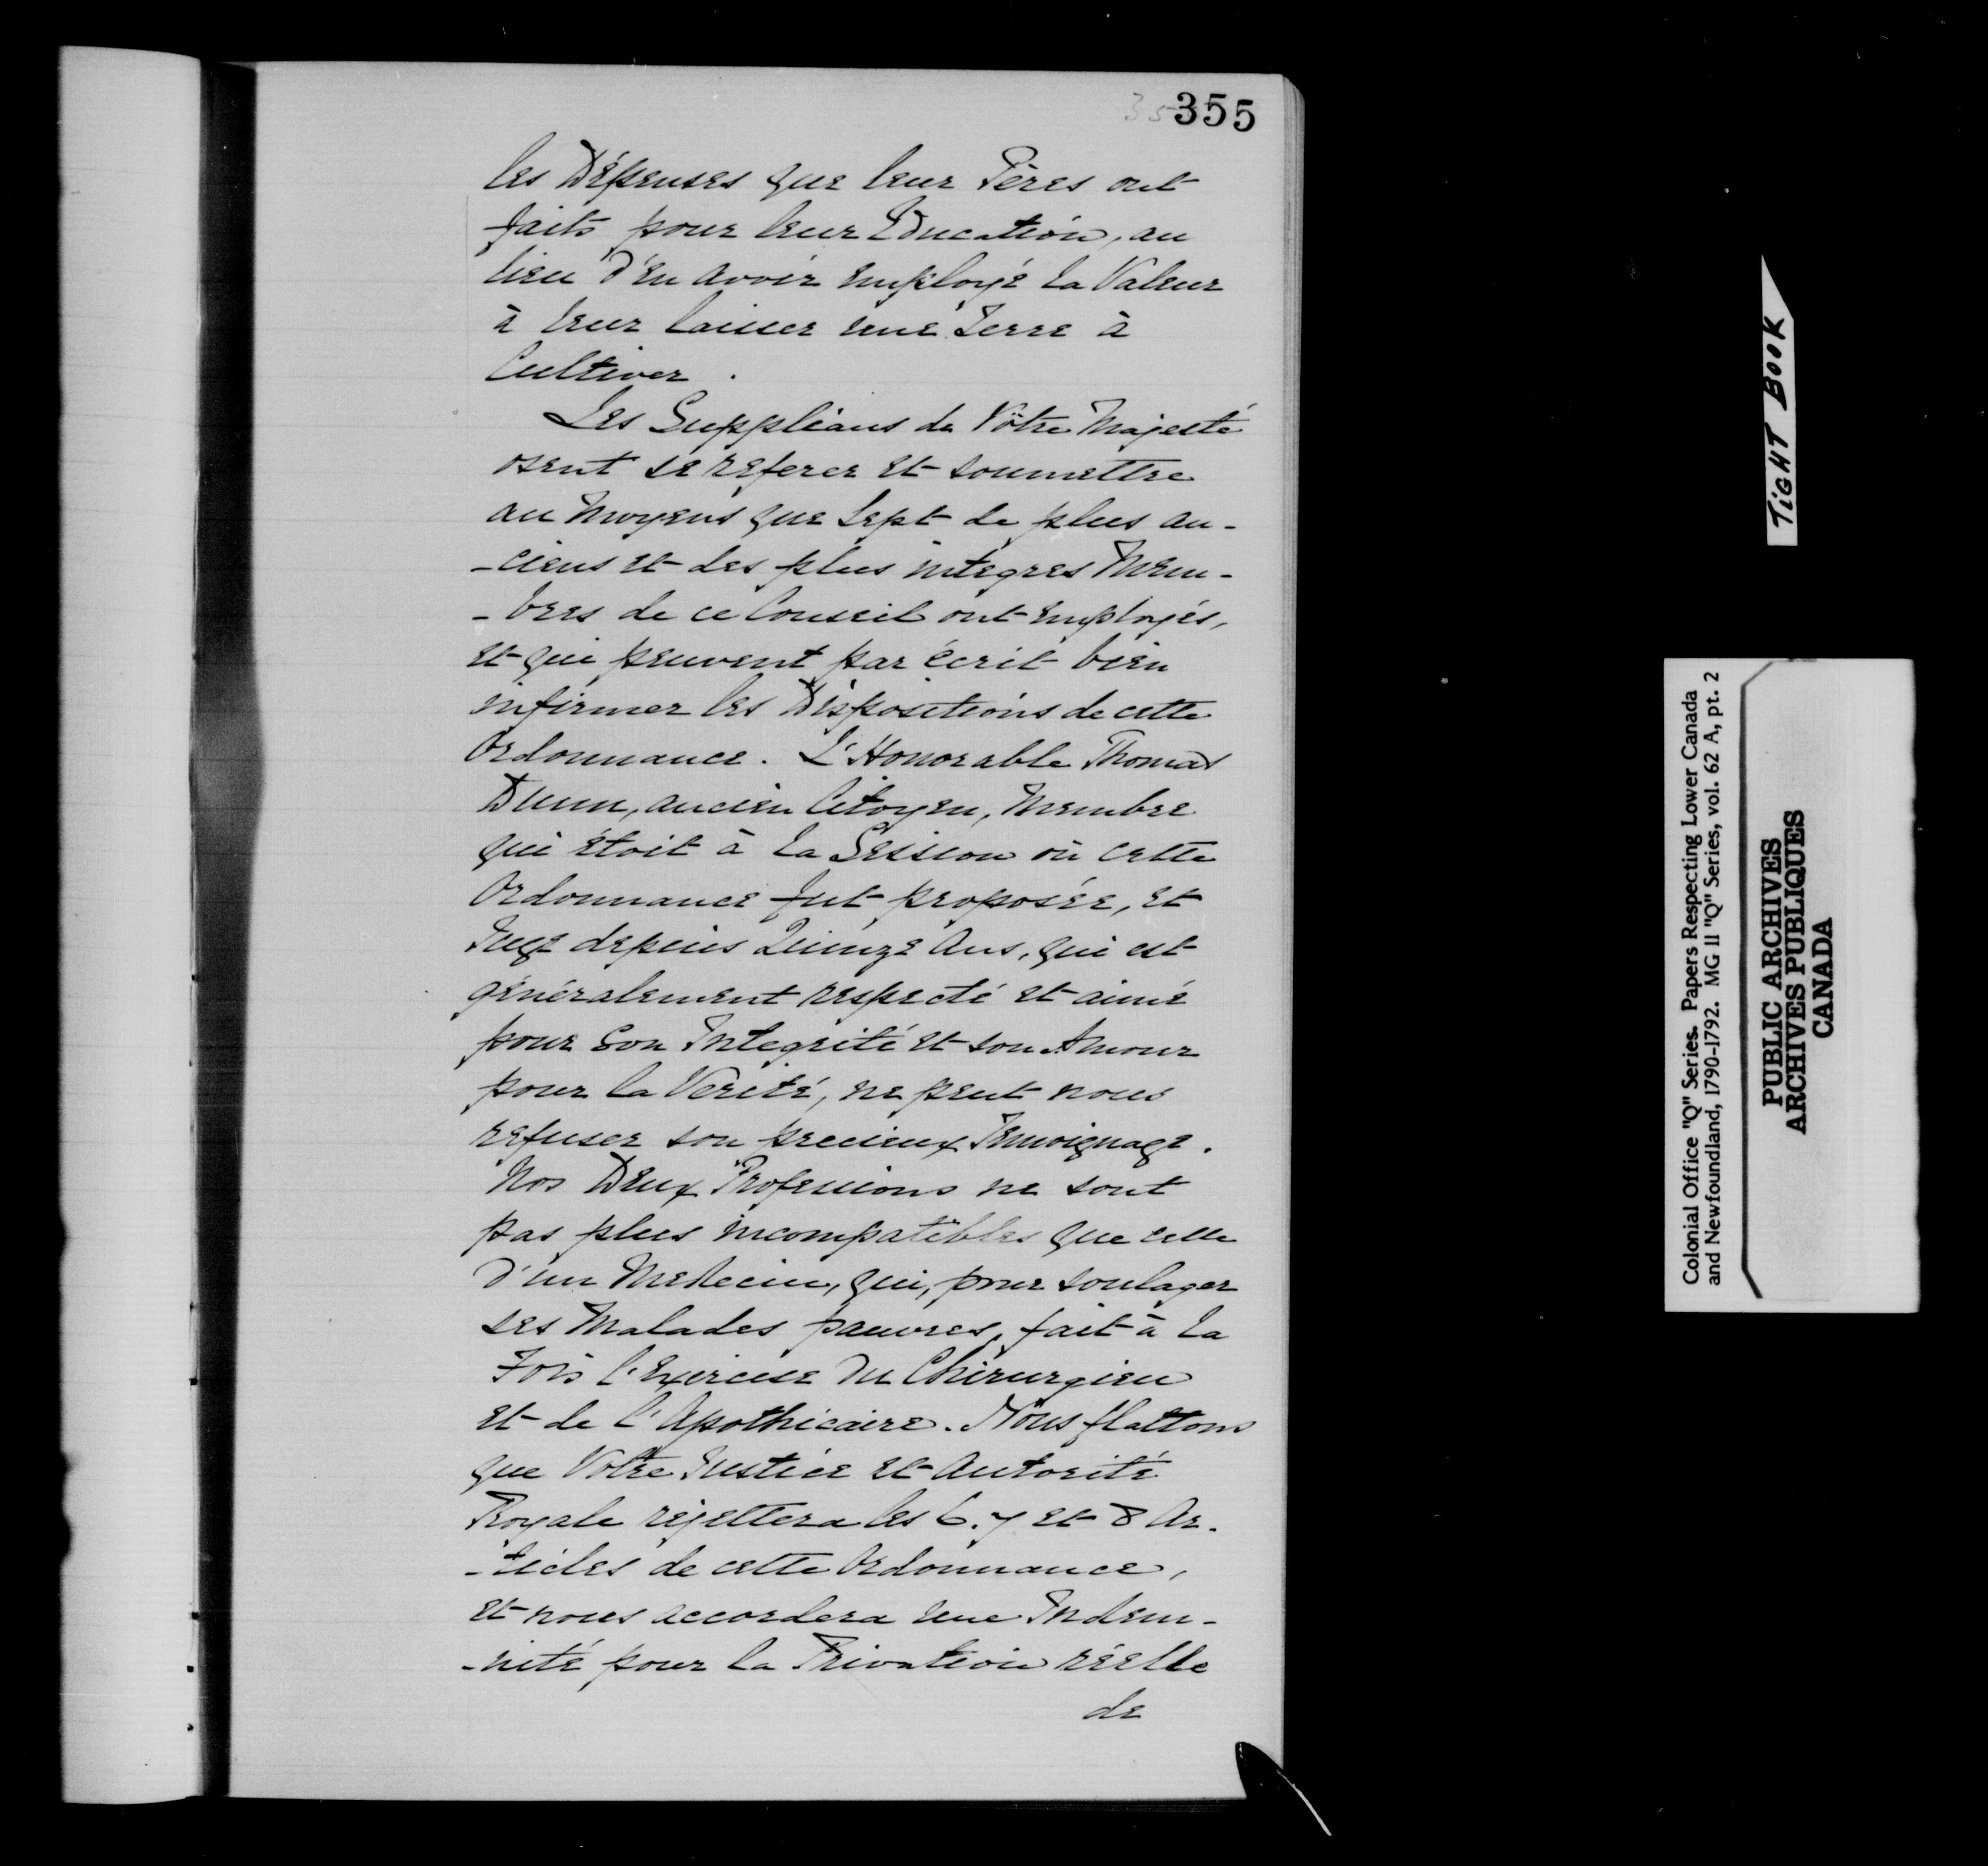 355
les Dépenses que leur Pères ont
faits pour leur Education, au
lieu d'en avoir employé la Valeur
à leur laisser une Terre à
Cultiver.
Les Supplians de Vôtre Majesté
osent se referer et soumettre
au Moyens que Sept de plus an-
-ciens et des plus integres Mem-
-bres de ce Conseil ont employés,
et qui peuvent par écrit bien
infirmer les Dispositions de cette
Ordonnance. L'Honorable Thomas
Dunn, ancien Citoyen, Membre
qui étoit à la Session où cette
Ordonnance fut proposée, et
Juge depuis Quinze Ans, qui est
généralement respecté et aimé
pour son Integrité et son Amour
pour la Verité, ne peut nous
refuser son precieux Temoignage.
Nos Deux Professions ne sont
pas plus incompatibles que celle
d'un Medecin, qui, pour soulager
ses Malades pauvres, fait à la
Fois l'Exercise du Chirurgien
et de l'Apothicaire. Nous flattons
que Votre Justice et Autorité
Royale rejettera les 6. 7 et 8 Ar-
-ticles de cette Ordonnance,
et nous accordera une Indem-
-nité pour la Privation réelle
de
TIGHT BOOK
Colonial Office "Q" Series. Papers Respecting Lower Canada
and Newfoundland, 1790-1792. MG 11 "Q" Series, vol. 62 A, pt. 2
PUBLIC ARCHIVES
ARCHIVES PUBLIQUES
CANADA